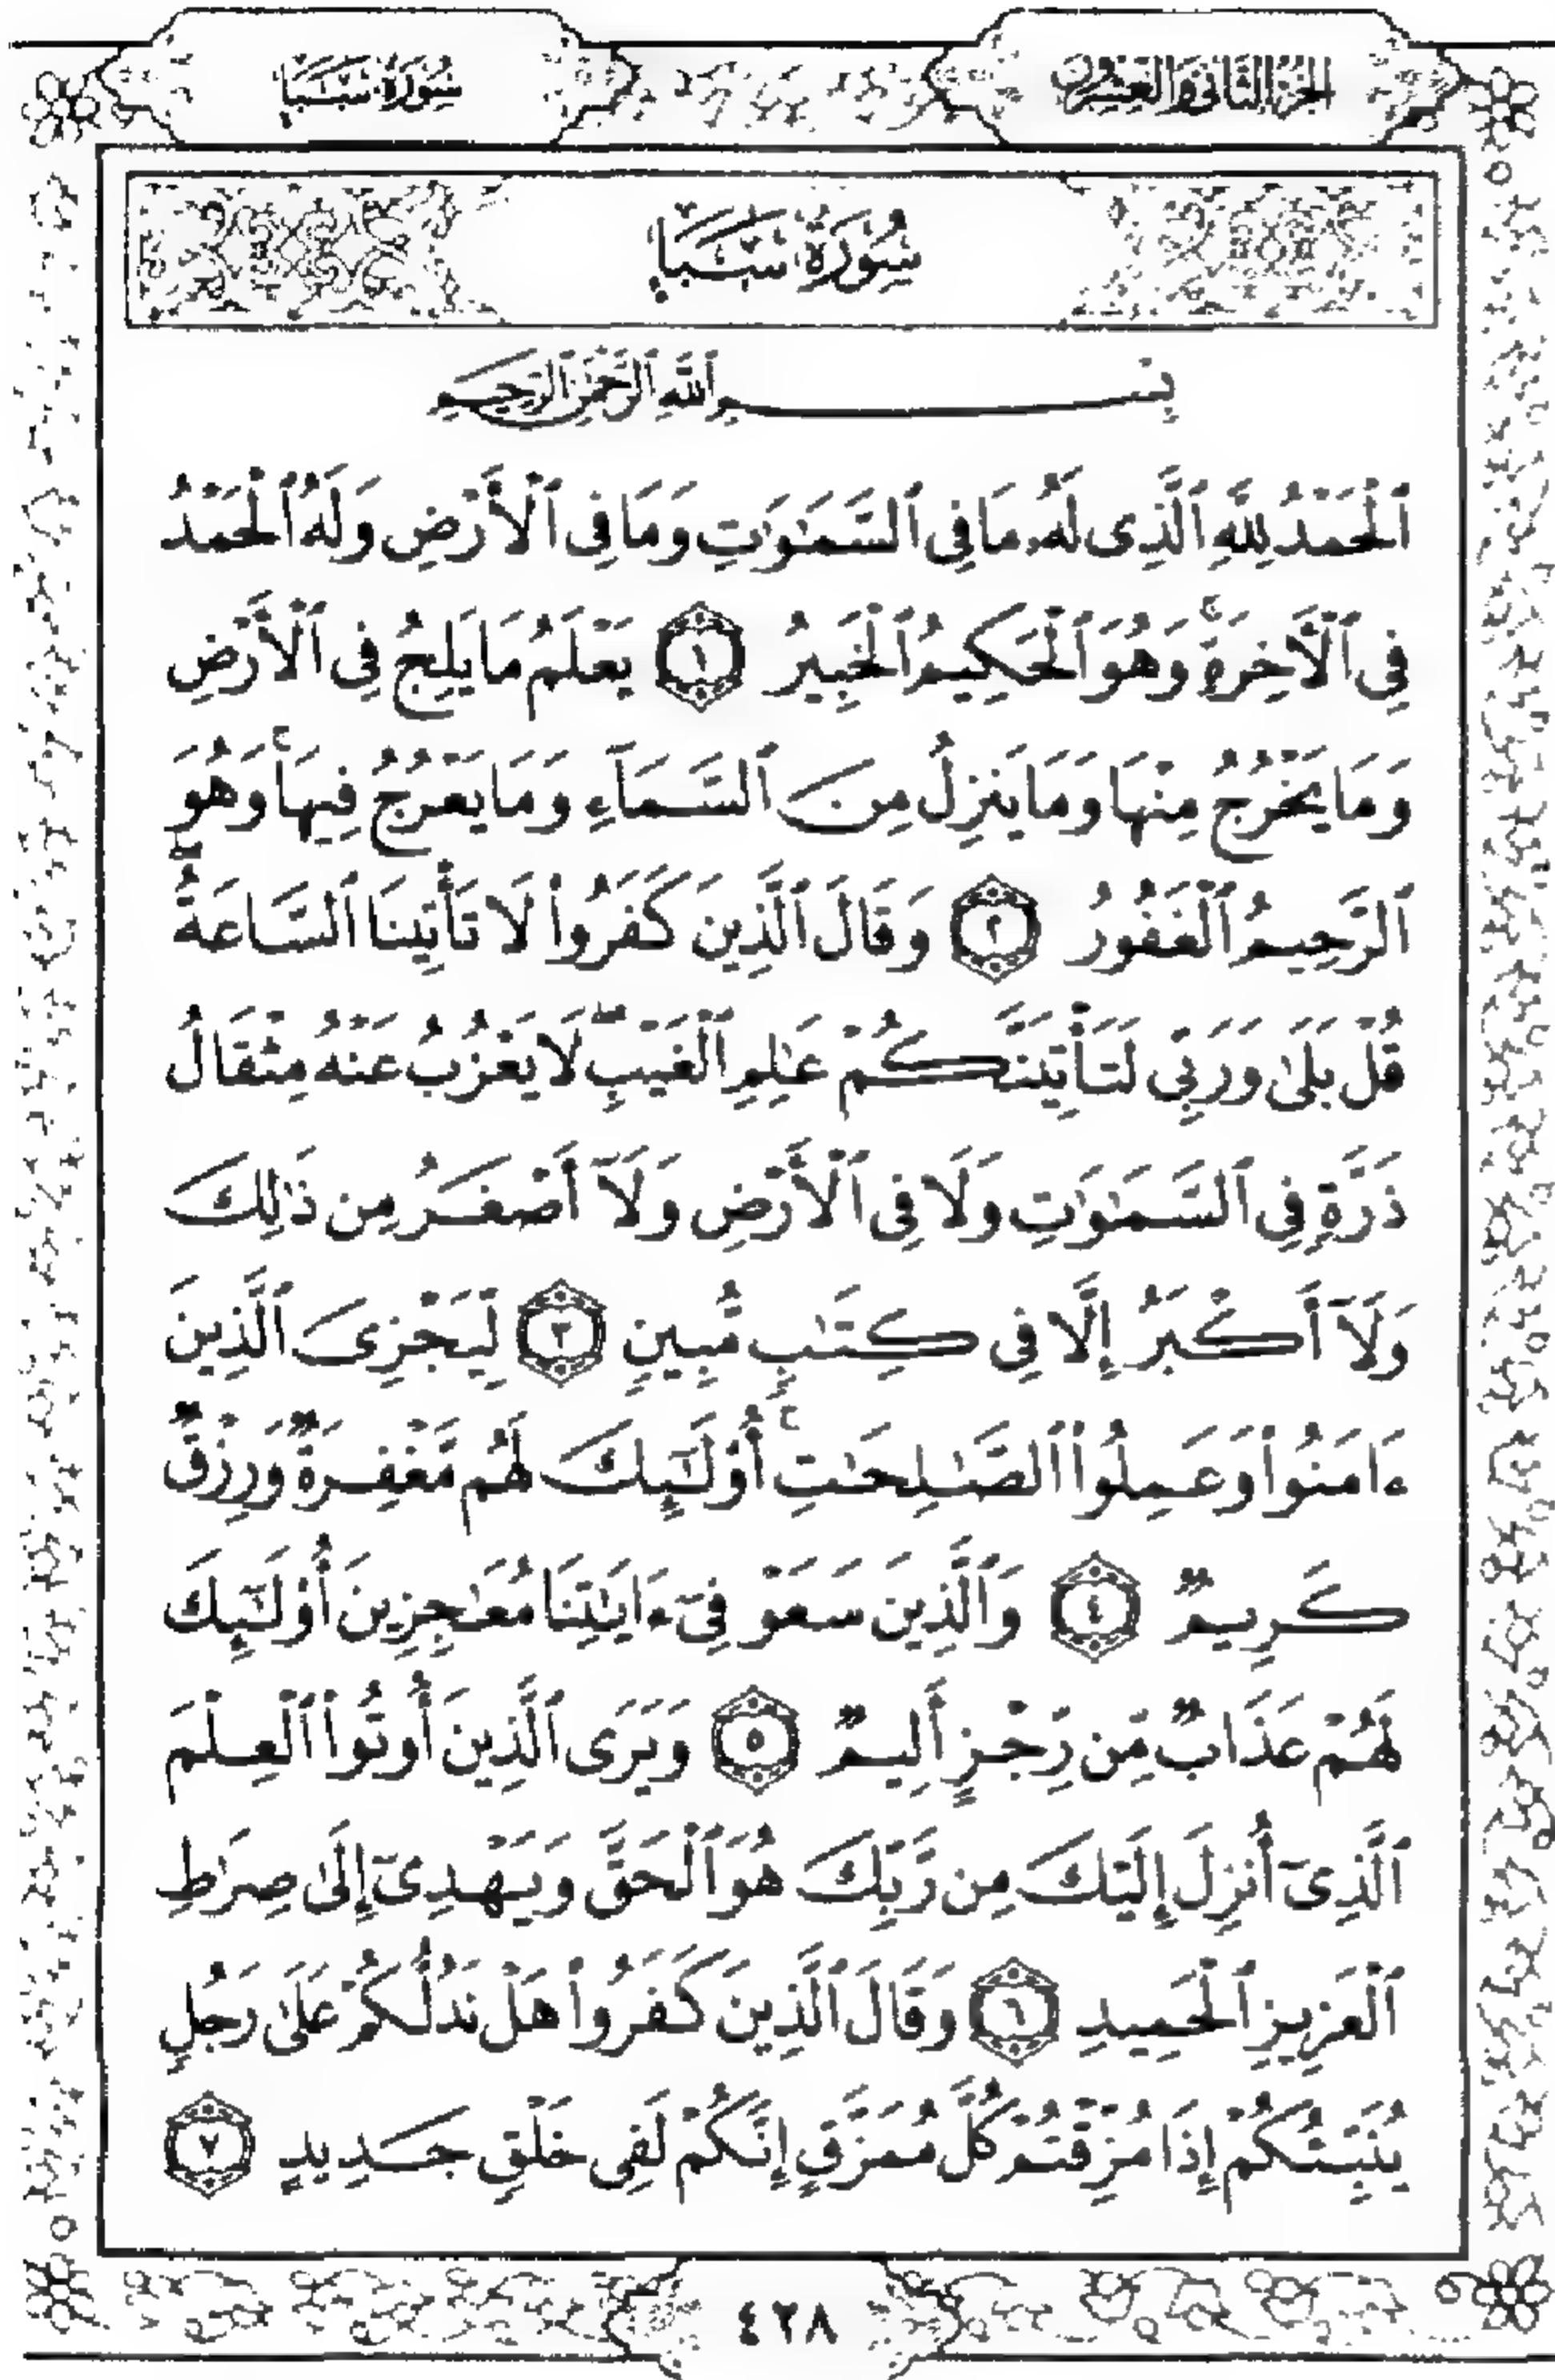 الجزء الثاني والعشرون
سورة سبأ
سُورَةُ سَبَإٍ
بِسْمِ ٱللَّهِ ٱلرَّحْمَٰنِ ٱلرَّحِيمِ
ٱلْحَمْدُ لِلَّهِ ٱلَّذِى لَهُۥ مَا فِى ٱلسَّمَٰوَٰتِ وَمَا فِى ٱلْأَرْضِ وَلَهُ ٱلْحَمْدُ
فِى ٱلْأَخِرَةِۚ وَهُوَ ٱلْحَكِيمُ ٱلْخَبِيرُ ١ يَعْلَمُ مَا يَلِجُ فِى ٱلْأَرْضِ
وَمَا يَخْرُجُ مِنْهَا وَمَا يَنزِلُ مِنَ ٱلسَّمَآءِ وَمَا يَعْرُجُ فِيهَاۚ وَهُوَ
ٱلرَّحِيمُ ٱلْغَفُورُ ٢ وَقَالَ ٱلَّذِينَ كَفَرُوا۟ لَا تَأْتِينَا ٱلسَّاعَةُۖ
قُلْ بَلَىٰ وَرَبِّى لَتَأْتِيَنَّكُمْ عَٰلِمِ ٱلْغَيْبِۖ لَا يَعْزُبُ عَنْهُ مِثْقَالُ
ذَرَّةٍ فِى ٱلسَّمَٰوَٰتِ وَلَا فِى ٱلْأَرْضِ وَلَآ أَصْغَرُ مِن ذَٰلِكَ
وَلَآ أَكْبَرُ إِلَّا فِى كِتَٰبٍ مُّبِينٍ ٣ لِّيَجْزِىَ ٱلَّذِينَ
ءَامَنُوا۟ وَعَمِلُوا۟ ٱلصَّٰلِحَٰتِۚ أُو۟لَٰٓئِكَ لَهُم مَّغْفِرَةٌ وَرِزْقٌ
كَرِيمٌ ٤ وَٱلَّذِينَ سَعَوْ فِىٓ ءَايَٰتِنَا مُعَٰجِزِينَ أُو۟لَٰٓئِكَ
لَهُمْ عَذَابٌ مِّن رِّجْزٍ أَلِيمٌ ٥ وَيَرَى ٱلَّذِينَ أُوتُوا۟ ٱلْعِلْمَ
ٱلَّذِىٓ أُنزِلَ إِلَيْكَ مِن رَّبِّكَ هُوَ ٱلْحَقَّ وَيَهْدِىٓ إِلَىٰ صِرَٰطِ
ٱلْعَزِيزِ ٱلْحَمِيدِ ٦ وَقَالَ ٱلَّذِينَ كَفَرُوا۟ هَلْ نَدُلُّكُمْ عَلَىٰ رَجُلٍ
يُنَبِّئُكُمْ إِذَا مُزِّقْتُمْ كُلَّ مُمَزَّقٍ إِنَّكُمْ لَفِى خَلْقٍ جَدِيدٍ ٧
٤٢٨